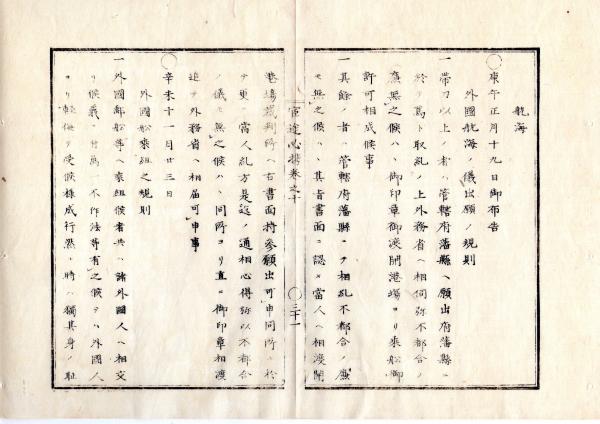 航海
○庚午正月十九日御布告
外國航海ノ儀出願ノ規則
一帶刀以上ノ者ハ管轄府藩縣ヘ願出府藩縣ニ
於テ篤ト取糺ノ上外務省ヘ相伺弥不都合ノ
廉無之候ハヽ御印章御渡開港場ヨリ乘船御
許可相成候事
一其餘ノ者ハ管轄府藩縣ニテ相糺不都合ノ廉
モ無之候ハヽ其旨書面ニ認メ當人ヘ相渡開
官途必携卷之十
○三十一
港場裁判所ヘ右書面持參願出可申同所ニ於
テ更ニ當人糺方是迄ノ通相心得弥以不都合
ノ儀モ無之候ハヽ同所ヨリ直ニ御印章相渡
追テ外務省ヘ相届可申事
○辛未十一月廿三日
外國船乘組之規則
一外國郵船等ヘ乘組候者共ハ諸外國人ヘ相交
リ候義ニ付萬一不作法等有之候テハ外國人
ヨリ輕侮ヲ受候樣成行然ル時ハ獨其身ノ恥